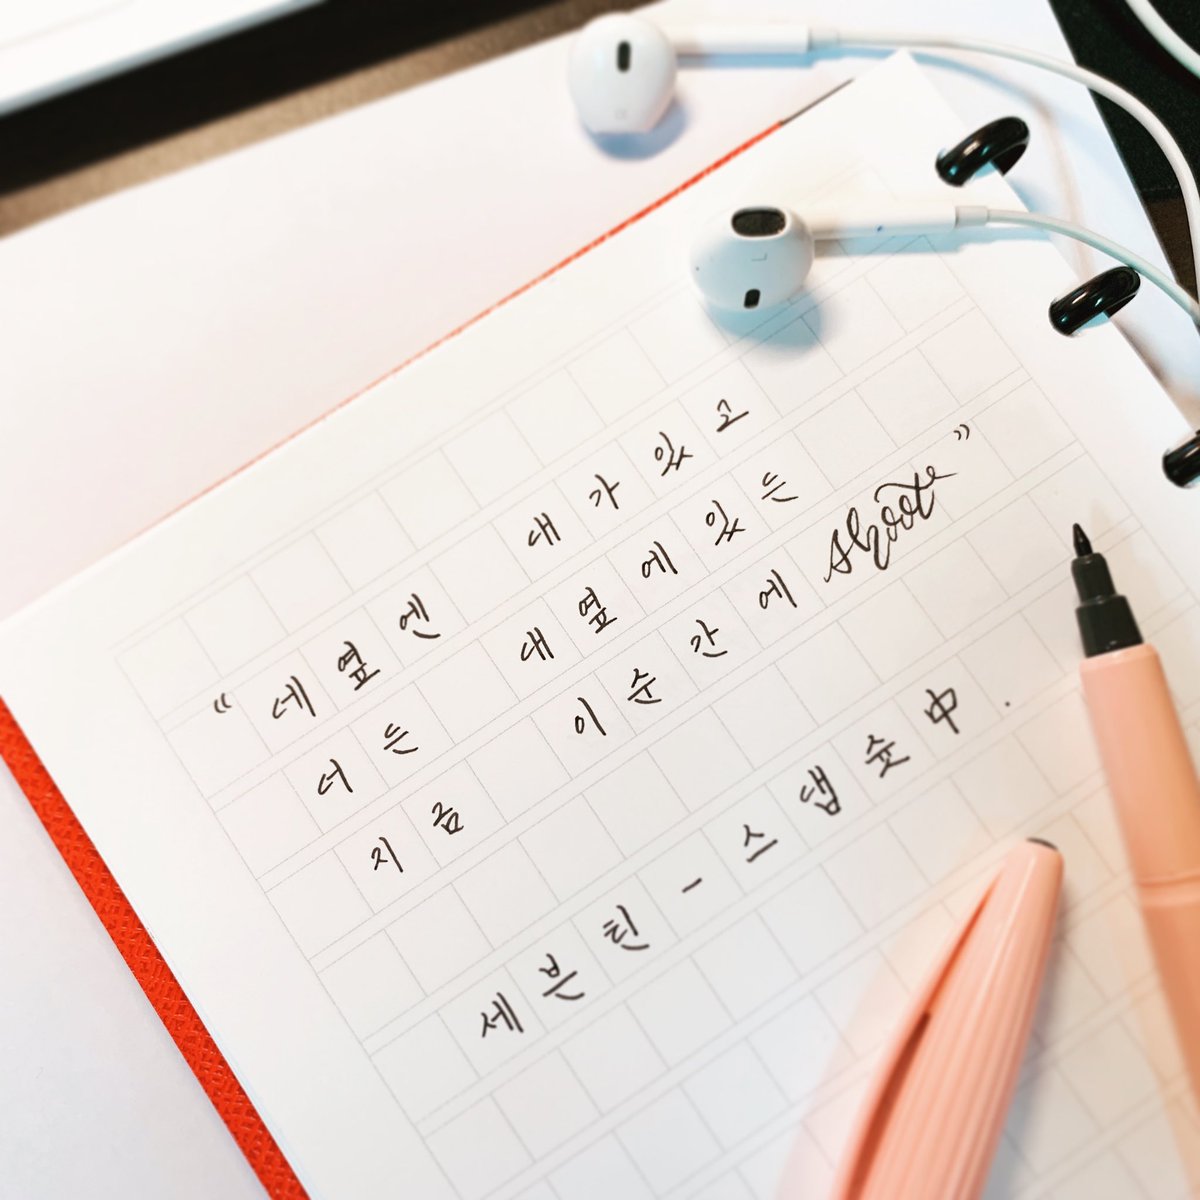 "네옆엔 내가있고
너는 내옆에있는
지금 이순간에 shoot"
세븐틴-스냅슛中.